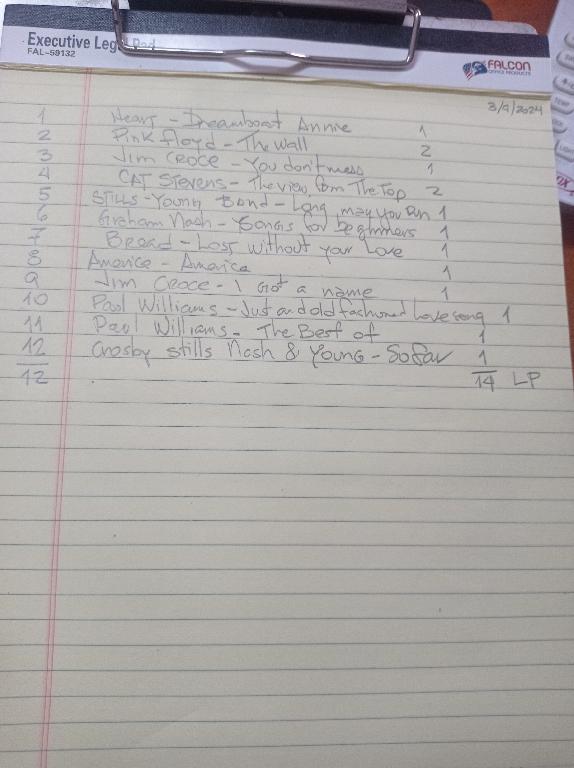 Executive Legal Pad
FAL-59132
FALCON
OFFICE PRODUCTS
3/9/2024
1 Heart - Dreamboat Annie 1
2 Pink Floyd - The Wall 2
3 Jim Croce - You don't mess 1
4 CAT Stevens - The view from The Top 2
5 Stills-Young Band - Long may you Run 1
6 Graham Nash - Songs for beginners 1
7 Bread - Lost without your Love 1
8 America - America 1
9 Jim Croce - I Got a name 1
10 Paul Williams - Just an old fashioned love song 1
11 Paul Williams - The Best of 1
12 Crosby Stills Nash & Young - So far 1
12 14 LP